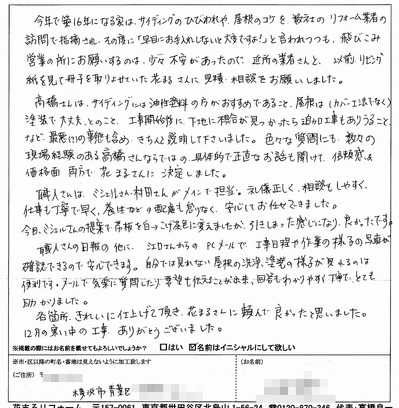 今年で築16年になる家は、サイディングのひびわれや、屋根のコケを数社のリフォーム業者の
訪問で指摘され、その度に「早目にお手入れしないと大変ですよ!」と言われつつも、飛びこみ
営業の所にお願いするのは、少々不安があったので、近所の業者さんと、以前リビング
紙を見て冊子を取りよせていた花まるさんに見積・相談をお願いしました。
高橋さんは、サイディングには油性塗料の方がおすすめであること、屋根は(カバー工法でなく)
塗装で大丈夫とのこと、工事開始後に、下地に不具合が見つかったら追加工事もありうること、
など、最悪の事態も含め、きちんと説明して下さいました。色々な質問にも、数々の
現場経験のある高橋さんならではの、具体的で正直なお話も聞けて、信頼感&
価格面両方で花まるさんに決定しました。
職人さんは、ミシェルさん、村田さんがメインで担当。礼儀正しく、相談もしやすく、
仕事も丁寧で早く、養生などの配慮も怠りなく、安心してお任せできました。
今日、ミシェルさんの提案で
職人さんの日報の他に、江口さんからのPCメールで工事日程や作業の様子の写真が
確認できるので安心できます。自分では見れない屋根の洗浄、塗装の様子が見えるのは
便利です。メールで気楽に質問したり要望も伝えることが出来、回答もわかりやすく丁寧で、とても
助かりました。
各箇所、きれいに仕上げて頂き、花まるさんに頼んで良かったと思いました。
12月の寒い中の工事、ありがとうございました。
※掲載の際にはお名前を載せてもよろしいでしょうか? □はい ☑名前はイニシャルにして欲しい
※市・区以降の町名・番地は見えないように加工致します
(ご住所) 〒
(お名前)
横浜市青葉区
花まるリフォーム 〒157-0061 東京都世田谷区北烏山1-56-24 ☎0120-870-246 代表:高橋良一